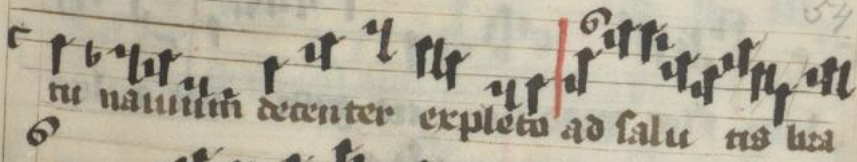 54
tu nauium decenter expleto ad salu tis bra